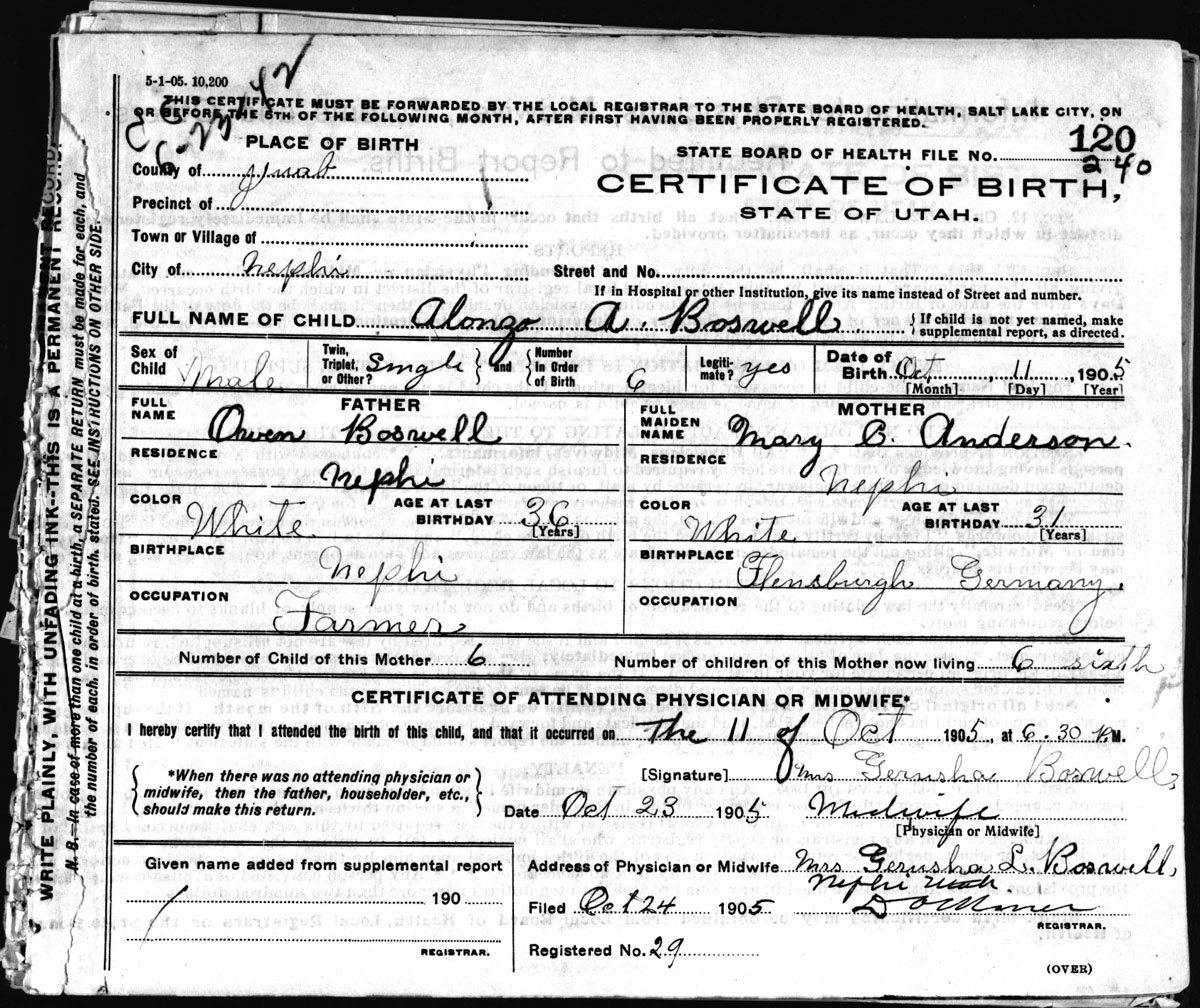 5-1-05. 10,200
THIS CERTIFICATE MUST BE FORWARDED BY THE LOCAL REGISTRAR TO THE STATE BOARD OF HEALTH, SALT LAKE CITY, ON
OR BEFORE THE 5TH OF THE FOLLOWING MONTH, AFTER FIRST HAVING BEEN PROPERLY REGISTERED.
120
PLACE OF BIRTH
STATE BOARD OF HEALTH FILE NO. 240
County of Juab
CERTIFICATE OF BIRTH,
Precinct of
STATE OF UTAH.
Town or Village of
City of Nephi Street and No.
If in Hospital or other Institution, give its name instead of Street and number.
FULL NAME OF CHILD Alonzo A. Boswell {If child is not yet named, make supplemental report, as directed.
Sex of Child Male Twin, Triplet, or Other? Single and Number in Order of Birth 6 Legitimate? yes Date of Birth Oct 11, 1905
[Month] [Day] [Year]
FATHER
FULL NAME Owen Boswell
RESIDENCE Nephi
COLOR White AGE AT LAST BIRTHDAY 36 [Years]
BIRTHPLACE Nephi
OCCUPATION Farmer
MOTHER
FULL MAIDEN NAME Mary C. Anderson.
RESIDENCE Nephi
COLOR White AGE AT LAST BIRTHDAY 31 [Years]
BIRTHPLACE Flensburgh Germany.
OCCUPATION
Number of Child of this Mother 6 Number of children of this Mother now living 6 sixth
CERTIFICATE OF ATTENDING PHYSICIAN OR MIDWIFE*
I hereby certify that I attended the birth of this child, and that it occurred on the 11 of Oct 1905, at 6.30 M.
*When there was no attending physician or
midwife, then the father, householder, etc.,
should make this return.
[Signature] Mrs Gerusha Boswell,
Date Oct 23 1905 Midwife
[Physician or Midwife]
Given name added from supplemental report
190
REGISTRAR.
Address of Physician or Midwife Mrs Gerusha L. Boswell,
Nephi Utah
Filed Oct 24 1905
REGISTRAR.
Registered No. 29
(OVER)
WRITE PLAINLY WITH UNFADING INK--THIS IS A PERMANENT RECORD.
N. B.—In case of more than one child at a birth, a SEPARATE RETURN must be made for each, and
the number of each, in order of birth, stated. SEE INSTRUCTIONS ON OTHER SIDE.